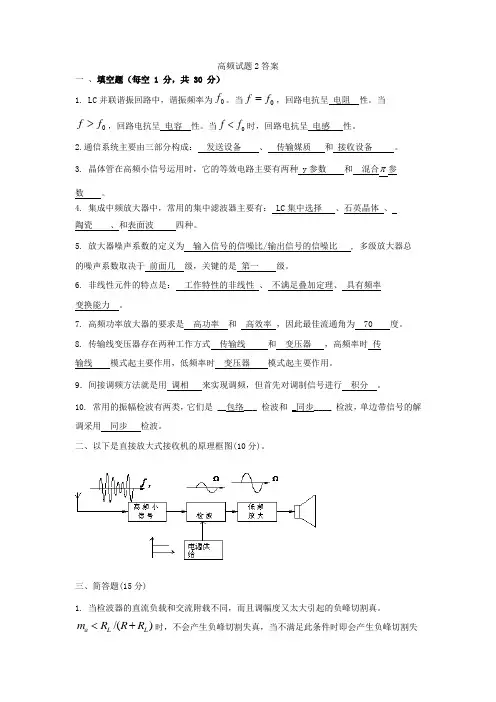 高频试题2答案
一 、填空题（每空 1 分，共 30 分）
1. LC并联谐振回路中，谐振频率为f₀。当f = f₀，回路电抗呈 电阻 性。当
f > f₀，回路电抗呈 电容 性。当f < f₀时，回路电抗呈 电感 性。
2.通信系统主要由三部分构成： 发送设备 、 传输媒质 和 接收设备 。
3. 晶体管在高频小信号运用时，它的等效电路主要有两种 y参数 和 混合π参
数 。
4. 集成中频放大器中，常用的集中滤波器主要有： LC集中选择 、石英晶体 、
陶瓷 、和表面波 四种。
5. 放大器噪声系数的定义为 输入信号的信噪比/输出信号的信噪比 ，多级放大总
的噪声系数取决于 前面几 级，关键的是 第一 级。
6. 非线性元件的特点是： 工作特性的非线性 、 不满足叠加定理、 具有频率
变换能力 。
7. 高频功率放大器的要求是 高功率 和 高效率 ，因此最佳流通角为 70 度。
8. 传输线变压器存在两种工作方式 传输线 和 变压器 ，高频率时 传
输线 模式起主要作用，低频率时 变压器 模式起主要作用。
9. 间接调频方法就是用 调相 来实现调频，但首先对调制信号进行 积分 。
10. 常用的振幅检波有两类，它们是 __包络___ 检波和 _同步____ 检波，单边带信号的解
调采用 同步 检波。
二、以下是直接放大式接收机的原理框图(10分)。
Ω Ω
高 频 小
信 号
检 波
低 频
放 大
电源供
给
三、简答题(15分)
1. 当检波器的直流负载和交流附载不同，而且调幅度又太大引起的负峰切割真。
mₐ < R_L /(R + R_L)时，不会产生负峰切割失真，当不满足此条件时即会产生负峰切割失